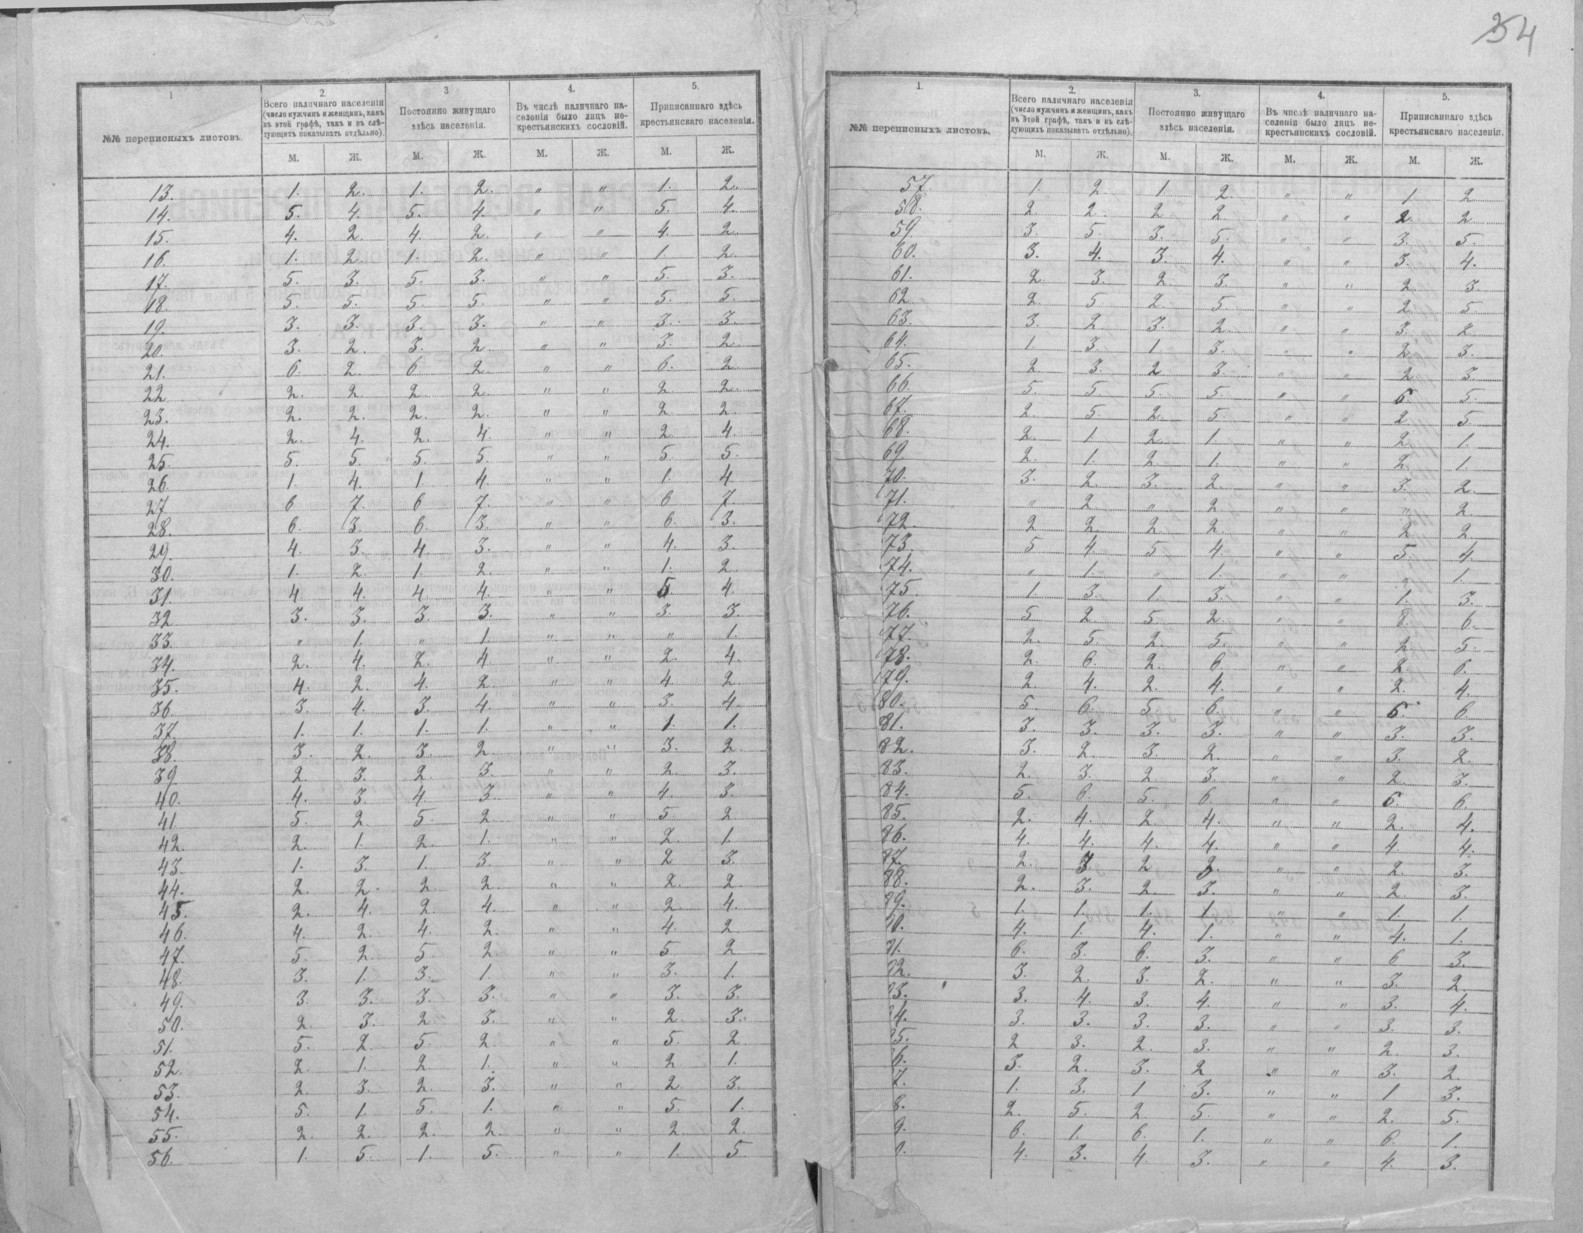 54
1
2.
3
4.
5.
№№ переписныхъ листовъ.
Всего наличнаго населенія (число мужчинъ и женщинъ, какъ въ этой графѣ, такъ и въ слѣдующихъ показывать отдѣльно).
Постоянно живущаго здѣсь населенія.
Въ числѣ наличнаго населенія было лицъ некрестьянскихъ сословій.
Приписаннаго здѣсь крестьянскаго населенія.
М. Ж. М. Ж. М. Ж. М. Ж.
13. 1. 2. 1. 2. " " 1. 2.
14. 5. 4. 5. 4. " " 5. 4.
15. 4. 2. 4. 2. " " 4. 2.
16. 1. 2. 1. 2. " " 1. 2.
17. 5. 3. 5. 3. " " 5. 3.
18. 5. 5. 5. 5. " " 5. 5.
19. 3. 3. 3. 3. " " 3. 3.
20. 3. 2. 3. 2. " " 3. 2.
21. 6. 2. 6. 2. " " 6. 2
22. 2. 2. 2. 2. " " 2. 2.
23. 2. 2. 2. 2. " " 2. 2.
24. 2. 4. 2. 4. " " 2. 4.
25. 5. 5. 5. 5. " " 5. 5.
26. 1. 4. 1. 4. " " 1. 4
27 6 7. 6 7. " " 6 7.
28. 6. 3. 6. 3. " " 6. 3.
29. 4. 3. 4 3. " " 4. 3.
30. 1. 2. 1. 2. " " 1. 2
31. 4. 4. 4 4. " " 5. 4
32 3. 3. 3. 3. " " 3. 3.
33. " 1. " 1. " " " 1.
34. 2. 4. 2. 4. " " 2. 4.
35. 4. 2. 4. 2. " " 4. 2
36. 3. 4. 3. 4. " " 3. 4.
37. 1. 1. 1. 1. " " 1. 1.
38. 3. 2. 3. 2. " " 3. 2
39 2. 3. 2. 3. " " 2. 3.
40. 4. 3. 4. 3. " " 4. 3.
41. 5. 2. 5. 2. " " 5. 2
42. 2. 1. 2. 1. " " 2. 1.
43. 1. 3. 1. 3. " " 2 3.
44. 2. 2. 2. 2. " " 2. 2.
45. 2. 4. 2. 4. " " 2. 4
46. 4. 2. 4. 2. " " 4. 2
47. 5. 2 5. 2. " " 5. 2
48. 3. 1. 3. 1. " " 3. 1.
49. 3. 3. 3. 3. " " 3. 3.
50. 2. 3. 2 3. " " 2. 3.
51. 5. 2 5. 2. " " 5. 2
52. 2. 1. 2 1. " " 2 1.
53. 2 3. 2. 3. " " 2 3.
54. 5. 1. 5. 1. " " 5. 1.
55. 2. 2. 2. 2. " " 2. 2.
56. 1. 5. 1. 5. " " 1. 5.
1.
2.
3.
4.
5.
№№ переписныхъ листовъ.
Всего наличнаго населенія (число мужчинъ и женщинъ, какъ въ этой графѣ, такъ и въ слѣдующихъ показывать отдѣльно).
Постоянно живущаго здѣсь населенія.
Въ числѣ наличнаго населенія было лицъ некрестьянскихъ сословій.
Приписаннаго здѣсь крестьянскаго населенія.
М. Ж. М. Ж. М. Ж. М. Ж.
57. 1. 2. 1. 2. " " 1. 2
58. 2 2. 2 2 " " 2. 2
59 3. 5. 3. 5. " " 3. 5.
60. 3. 4. 3. 4. " " 3. 4.
61. 2. 3. 2 3 " " 2. 3
62. 2. 5 2. 5. " " 2. 5.
63. 3. 2 3. 2. " " 3. 2.
64. 1 3. 1 3. " " 2. 3.
65. 2. 3. 2 3. " " 2 3.
66. 5. 5 5. 5. " " 6. 5.
67. 2. 5. 2. 5. " " 2. 5
68. 2. 1 2. 1. " " 2. 1.
69 2. 1. 2. 1. " " 2. 1.
70. 3. 2. 3. 2. " " 3. 2.
71. " 2. " 2 " " " 2.
72. 2 2. 2 2. " " 2 2.
73. 5 4. 5. 4. " " 5. 4.
74. " 1. " 1. " " 1.
75. 1. 3. 1. 3. " " 1. 3.
76. 5 2. 5. 2. " " 8. 6.
77. 2. 5. 2. 5. " " 2. 5.
78. 2. 6. 2. 6. " " 2. 6.
79. 2. 4. 2. 4. " " 2. 4.
80. 5. 6. 5. 6. " " 6. 6.
81. 3. 3. 3. 3. " " 3. 3.
82. 3. 2. 3. 2. " " 3. 2.
83. 2. 3. 2 3. " " 2. 3.
84. 5. 6 5. 6. " " 6. 6.
85. 2. 4. 2 4. " " 2. 4.
86. 4. 4. 4. 4. " " 4 4.
87. 2. 3 2 " " 2. 3.
88. 2. 3. 2 3. " " 2 3.
89. 1. 1. 1. 1. " " 1. 1.
90. 4. 1. 4. 1. " " 4. 1.
91. 6. 3. 6. 3. " " 6 3.
92. 3. 2. 3 2. " " 3. 2
93. 3. 4. 3. 4. " " 3. 4.
4. 3. 3. 3. 3. " " 3. 3.
5. 2 3. 2. 3. " " 2. 3.
6. 3. 2. 3. 2 " " 3. 2
7. 1. 3. 1 3. " " 1 3.
8. 2. 5. 2 5. " " 2. 5.
9. 6. 1. 6. 1. " " 6. 1.
0. 4. 3. 4. 3. " " 4. 3.